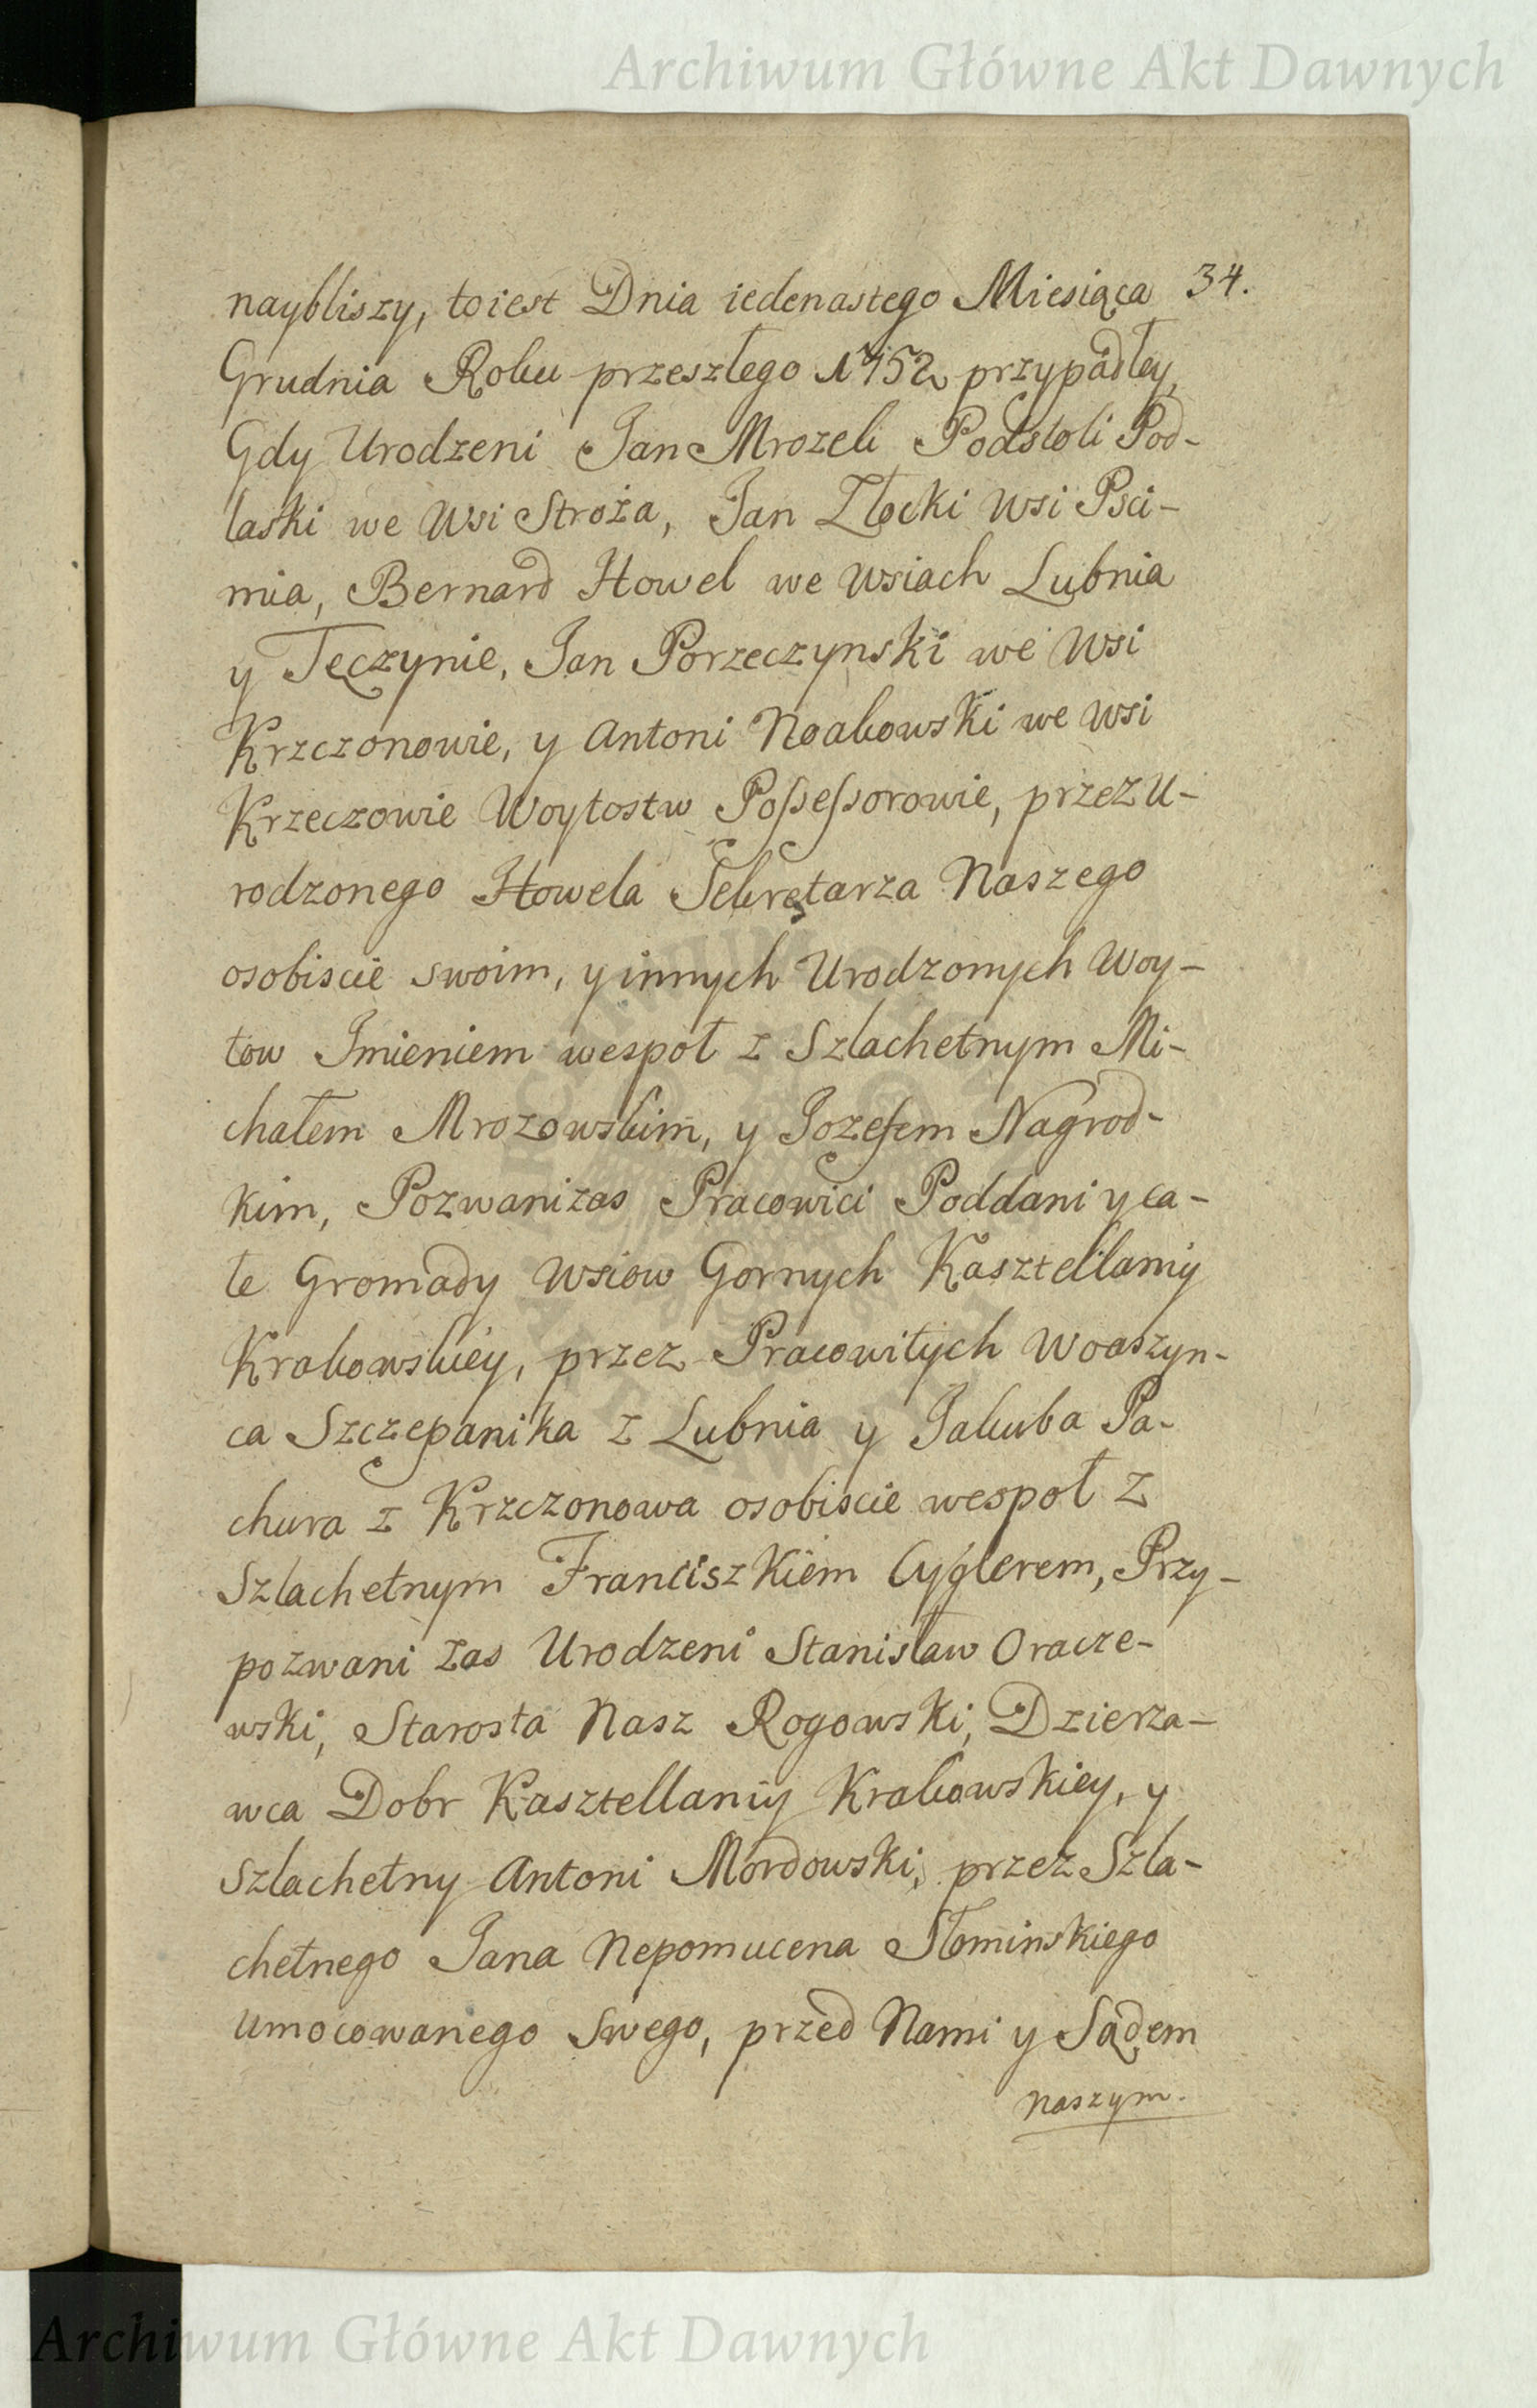 Archiwum Główne Akt Dawnych
34.
naybliszy, toiest Dnia iedenastego Miesiąca
Grudnia Roku przeszłego 1752 przypadłey,
Gdy Urodzeni Jan Mrozek Podstoli Pod-
laski we Wsi Stroża, Jan Złocki Wsi Psci-
mia, Bernard Howel we Wsiach Lubnia
y Tęczynie, Jan Porzeczynski we Wsi
Krzczonowie, y Antoni Noakowski we Wsi
Krzeczowie Woytostw Possessorowie, przez U-
rodzonego Howela Sekretarza Naszego
osobiscie swoim, y innych Urodzonych Woy-
tow Jmieniem wespoł z Szlachetnym Mi-
chałem Mrozowskim, y Jozefem Nagrod-
kim, Pozwani zas Pracowici Poddani y ca-
łe Gromady Wsiow Gornych Kasztellaniy
Krakowskiey, przez Pracowitych Waaszyn-
ca Szczepanika z Lubnia y Jakuba Pa-
chura z Krzczonowa osobiscie wespoł z
Szlachetnym Franciszkiem Cyglerem, Przy-
pozwani zas Urodzeni Stanisław Oracze-
wski, Starosta Nasz Rogowski, Dzierza-
wca Dobr Kasztellaniy Krakowskiey, y
Szlachetny Antoni Mordowski, przez Szla-
chetnego Jana Nepomucena Słominskiego
umocowanego Swego, przed Nami y Sądem
naszym.
Archiwum Główne Akt Dawnych